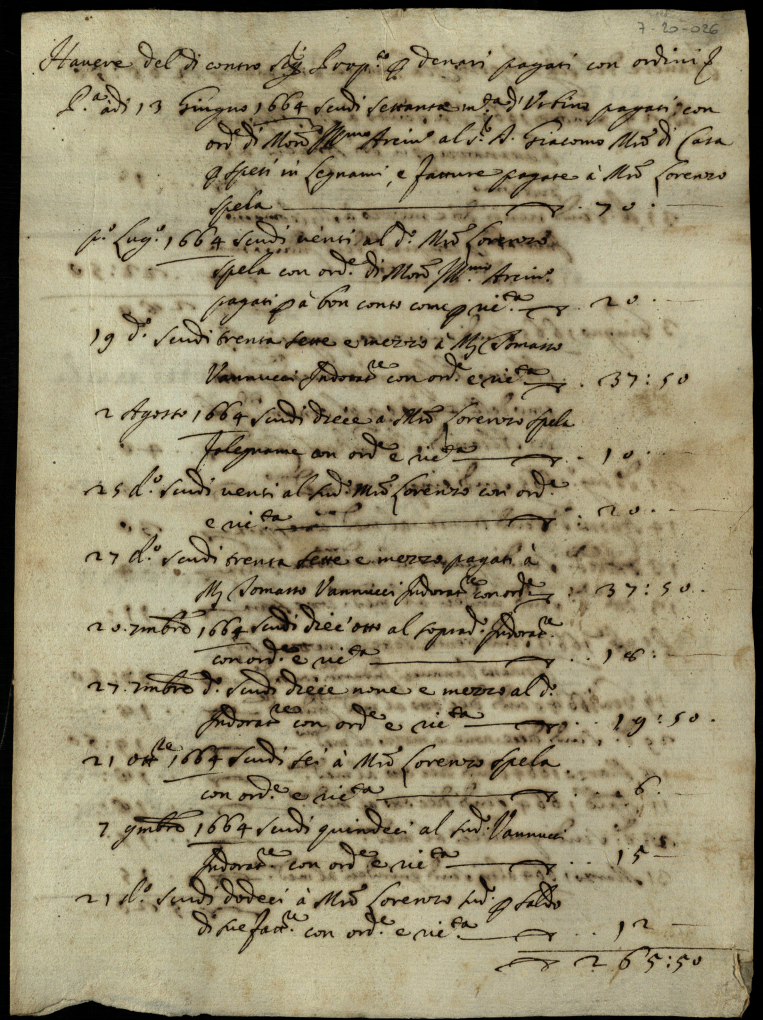 7-20-026
Havere del di contro Sig.r Prop.to p denari pagati con ordini p
P.a adi 13 Giugno 1664 scudi settanta m.ta d'Urbino pagati con
ord.e di Mon.r Ill.mo Arciv.o al s.r D. Giacomo M.ro di Casa
p spesi in Legnami, e fatture pagate à M.ro Lorenzo
Spela 70
p.o Lug.o 1664 scudi venti al d.o M.ro Lorenzo
Spela con ord.e di Mon.r Ill.mo Arciv.o
pagati p à bon conto come p ric.ta 20
19 d.o scudi trenta sette e mezzo à M. Tomasso
Vannucci Indorat.re con ord.e e ric.ta 37:50
2 Agosto 1664 scudi diece à M.ro Lorenzo Spela
falegname con ord.e e ric.ta 10
25 d.o scudi venti al sud.o M.ro Lorenzo con ord.e
e ric.ta 20
27 d.o scudi trenta sette e mezzo pagati à
M. Tomasso Vannucci Indorat.re con ord.e 37:50
20 7mbre 1664 scudi diec'otto al soprad.o Indorat.re
con ord.e e ric.ta 18
27 7mbre d.o scudi diece nove e mezzo al d.o
Indorat.re con ord.e e ric.ta 19:50
21 ott.re 1664 scudi sei à M.ro Lorenzo Spela
con ord.e e ric.ta 6
7 9mbre 1664 scudi quindeci al sud.o Vannucci
Indorat.re con ord.e e ric.ta 15
21 d.o scudi dodeci à M.ro Lorenzo sud.o p saldo
di sue fatt.re con ord.e e ric.ta 12
265:50